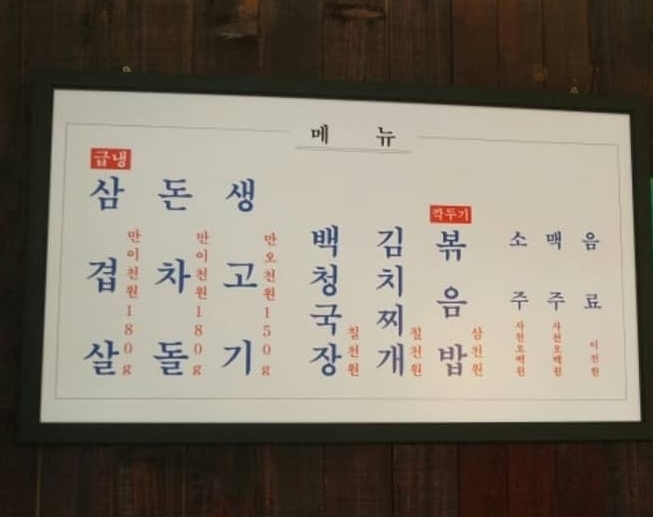 메 뉴
급냉
삼겹살
만이천원180g
돈차돌
만이천원180g
생고기
만오천원150g
백청국장
칠천원
김치찌개
칠천원
깍두기
볶음밥
삼천원
소주
사천오백원
맥주
사천오백원
음료
이천원